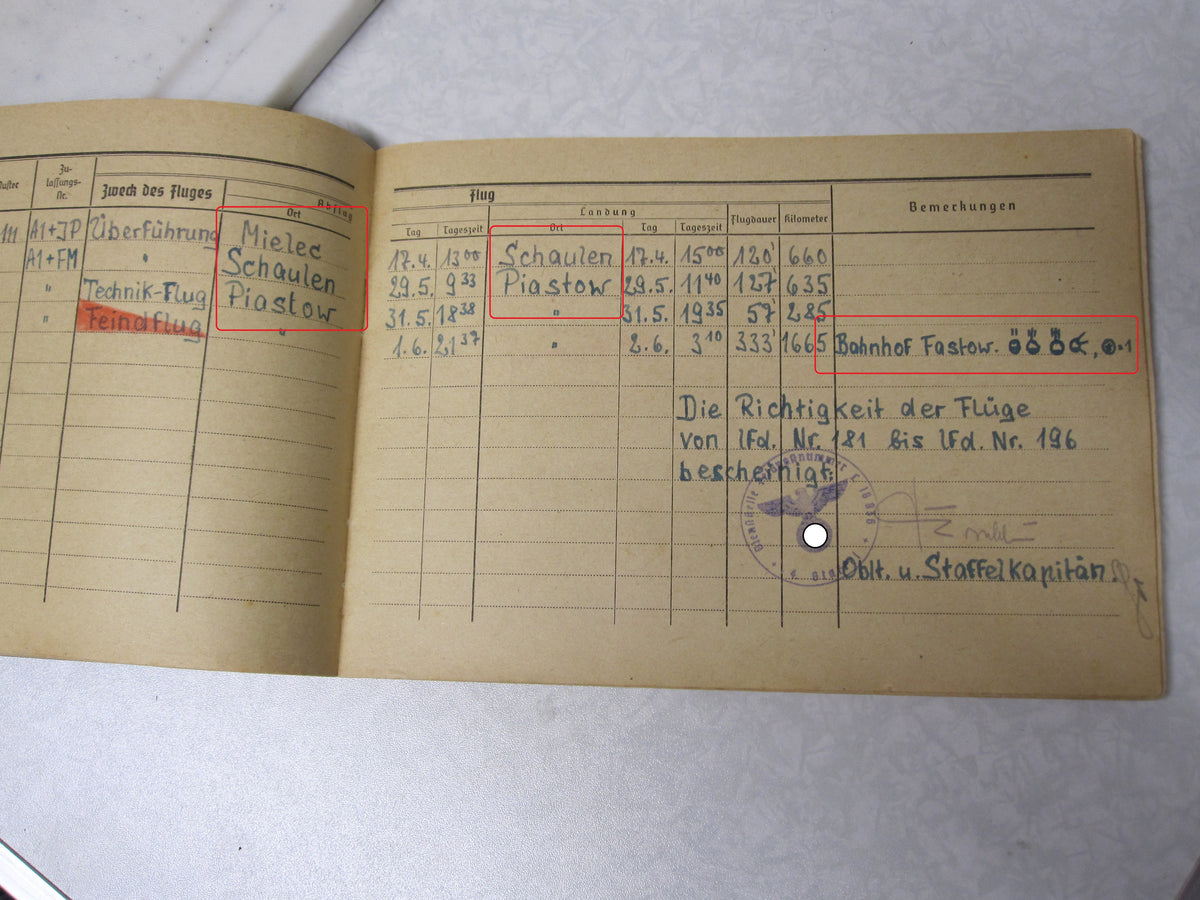 Zu-
lassungs-
Nr.
Zweck des Fluges
Abflug
Ort
A1+JP Überführung Mielec
A1+FM " Schaulen
" Technik-Flug Piastow
" Feindflug "
Flug
Landung
Tag Tageszeit Ort Tag Tageszeit Flugdauer Kilometer Bemerkungen
17.4. 13 00 Schaulen 17.4. 15 00 120' 660
29.5. 9 33 Piastow 29.5. 11 40 127' 635
31.5. 18 38 " 31.5. 19 35 57' 285
1.6. 21 37 " 2.6. 3 10 333' 1665 Bahnhof Fastow.
Die Richtigkeit der Flüge
von lfd. Nr. 181 bis lfd. Nr. 196
bescheinigt:
Oblt. u. Staffelkapitän.